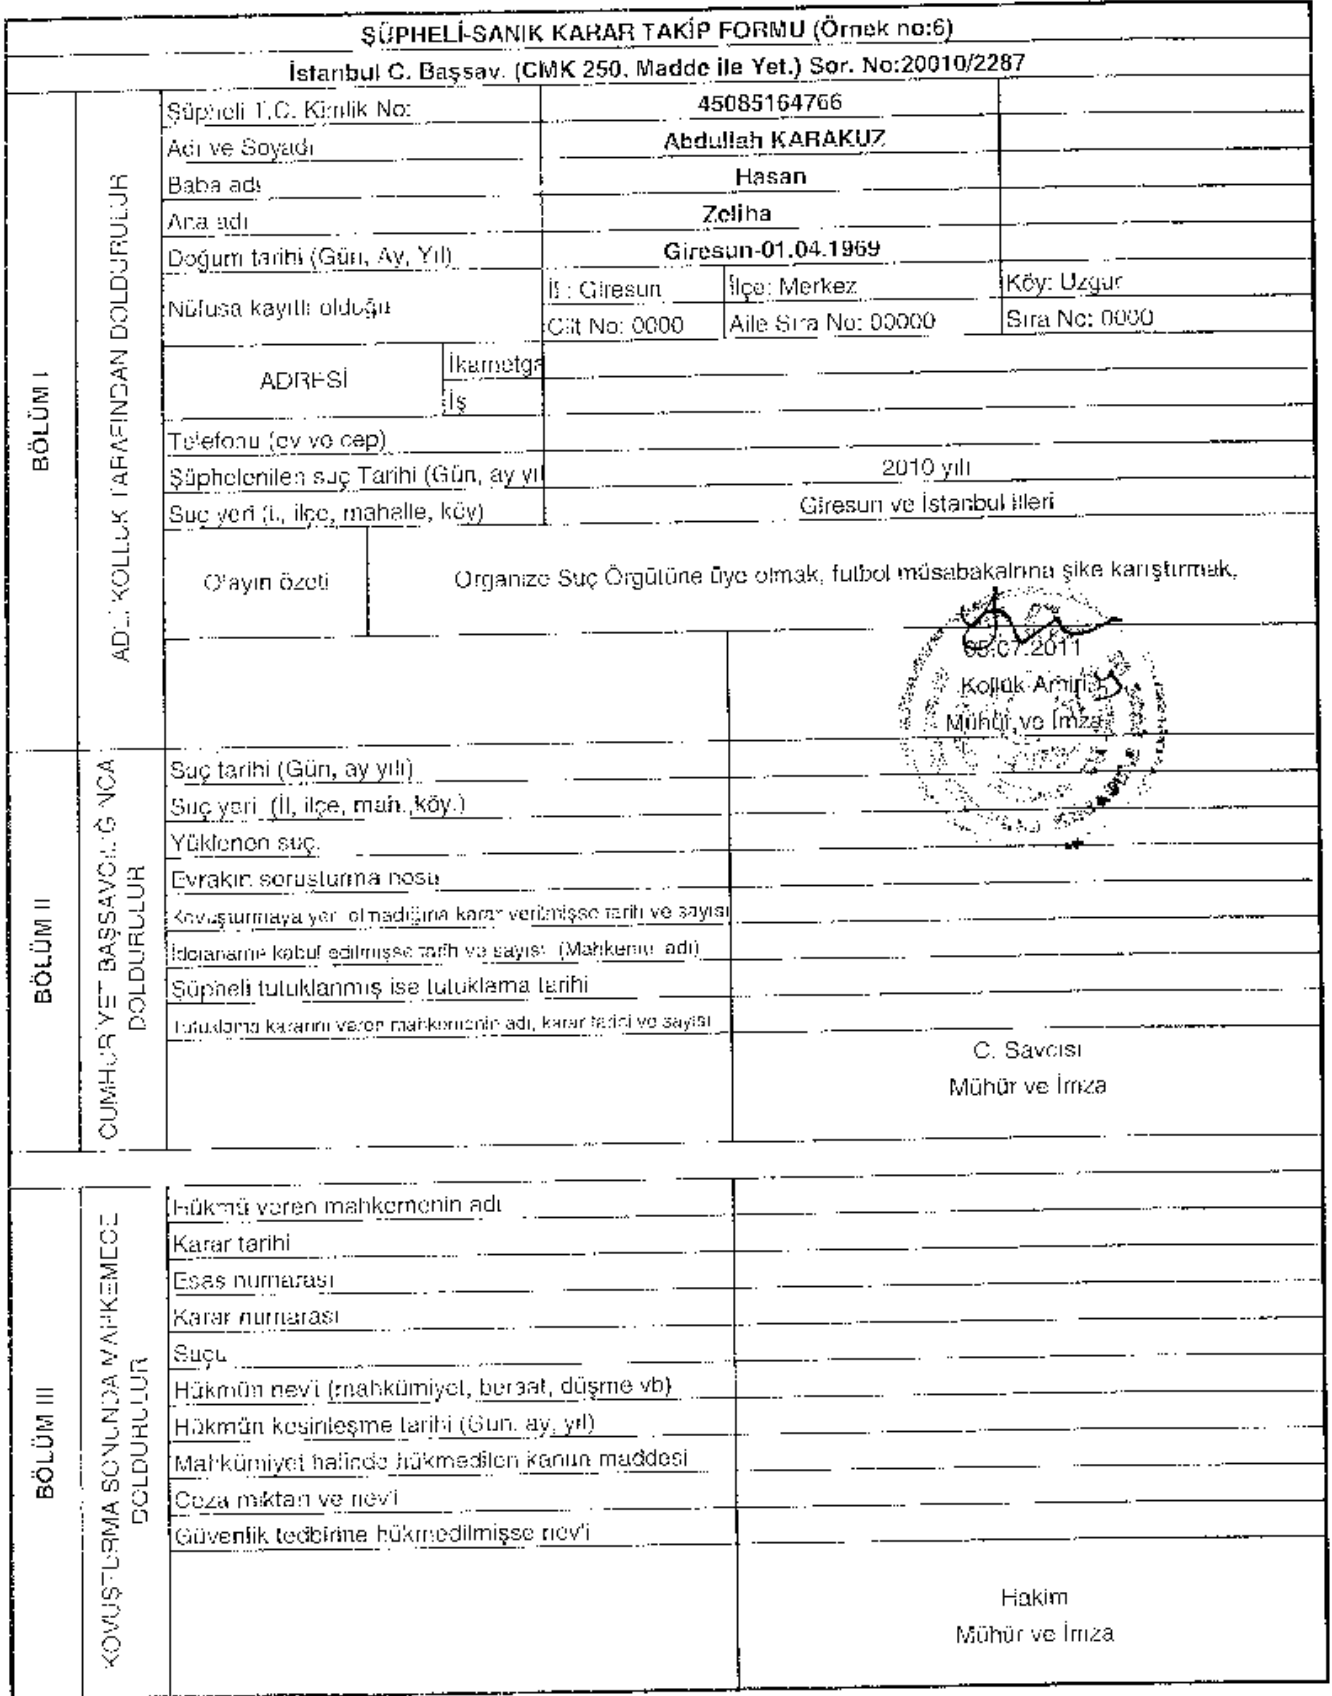 ŞÜPHELİ-SANIK KARAR TAKİP FORMU (Örnek no:6)
İstanbul C. Başsav. (CMK 250. Madde ile Yet.) Sor. No:20010/2287
BÖLÜM I
ADLİ KOLLUK TARAFINDAN DOLDURULUR
Şüpheli T.C. Kimlik No: 45085164766
Adı ve Soyadı Abdullah KARAKUZ
Baba adı Hasan
Ana adı Zeliha
Doğum tarihi (Gün, Ay, Yıl) Giresun-01.04.1969
Nüfusa kayıtlı olduğu İl : Giresun İlçe: Merkez Köy: Uzgur
Cilt No: 0000 Aile Sıra No: 00000 Sıra No: 0000
ADRESİ İkametga
İş
Telefonu (ev ve cep)
Şüphelenilen suç Tarihi (Gün, ay yıl 2010 yılı
Suç yeri (İl, ilçe, mahalle, köy) Giresun ve İstanbul İlleri
Olayın özeti Organize Suç Örgütüne üye olmak, futbol müsabakalrına şike karıştırmak,
05.07.2011
Kolluk Amiri
Mühür ve İmza
BÖLÜM II
CUMHURİYET BAŞSAVCILIĞINCA DOLDURULUR
Suç tarihi (Gün, ay yılı)
Suç yeri (İl, ilçe, mah. köy.)
Yüklenen suç.
Evrakın soruşturma nosu
Kovuşturmaya yer olmadığına karar verilmişse tarih ve sayısı
İddianame kabul edilmişse tarih ve sayısı (Mahkeme adı)
Şüpheli tutuklanmış ise tutuklama tarihi
Tutuklama kararını veren mahkemenin adı, karar tarihi ve sayısı
C. Savcısı
Mühür ve İmza
BÖLÜM III
KOVUŞTURMA SONUNDA MAHKEMECE DOLDURULUR
Hükmü veren mahkemenin adı
Karar tarihi
Esas numarası
Karar numarası
Suçu
Hükmün nev'i (mahkümiyet, beraat, düşme vb)
Hükmün kesinleşme tarihi (Gün, ay, yıl)
Mahkümiyet halinde hükmedilen kanun maddesi
Ceza miktarı ve nev'i
Güvenlik tedbirine hükmedilmişse nev'i
Hakim
Mühür ve İmza